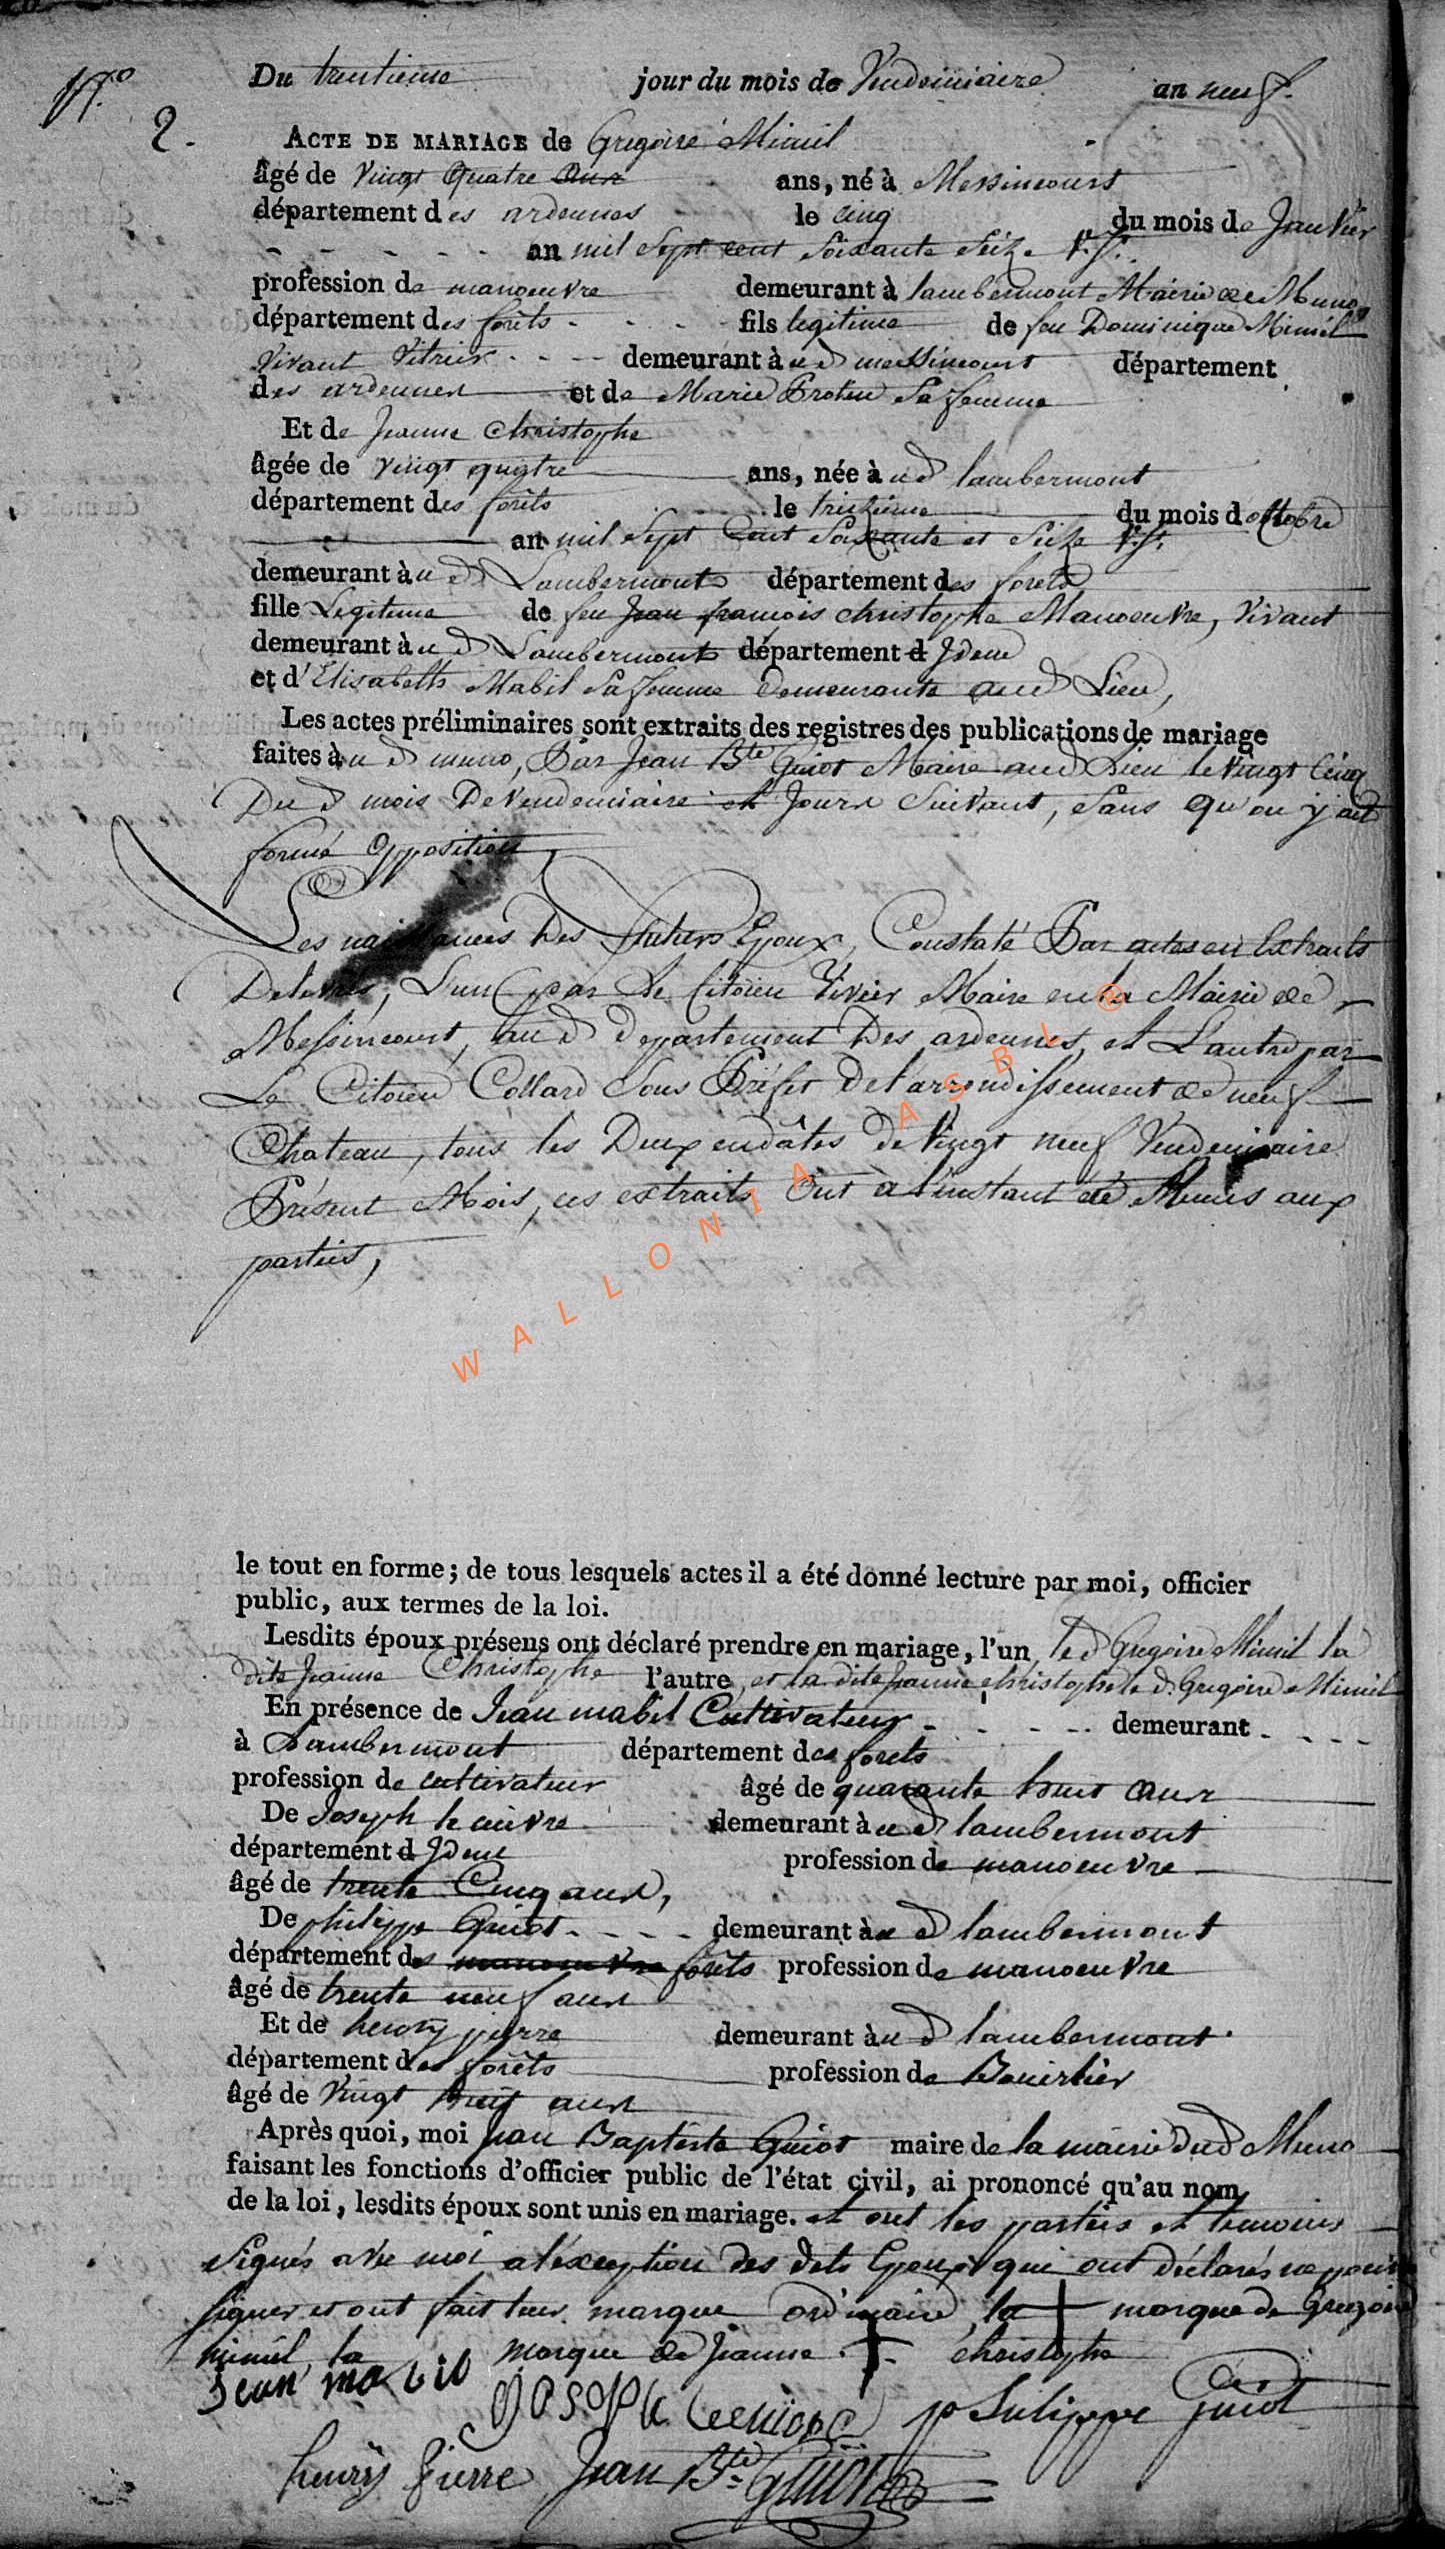 N.o Du trentieme jour du mois de Vendemiaire an neuf.
2. ACTE DE MARIAGE de Gregoire Mimil
âgé de Vingt Quatre ans ans, né à Messincourt
département des ardennes le cinq du mois de Janvier
an mil Sept cent Soixante Seize V.S.
profession de manoeuvre demeurant à lambermont Mairie de Muno
département des forêts fils legitime de feu Dominique Mimil
Vivant Vitrier demeurant à ud messincourt département
des ardennes et de Marie Proten Sa femme
Et de Jeanne Christophe
âgée de vingt quatre ans, née à ud lambermont
département des forêts le treizieme du mois doctobre
an mil Sept Cent Soixante et Seize V.S.
demeurant à ud Lambermont département des forêts
fille Legitime de feu Jean francois christophe Manoeuvre, Vivant
demeurant à ud Lambermont département d Idem
et d'Elisabeth Mabil Sa femme demeurante aud Lieu,
Les actes préliminaires sont extraits des registres des publications de mariage
faites à ud muno, Par Jean Bte Guiot Maire aud Lieu le Vingt Cinq
Dud mois De Vendemiaire et Jours Suivant, Sans qu'on y ait
formé Opposition,
Les naissances Des Futurs Epoux, Constaté Par actes en Extraits
Delivrés, L'un par Le Citoien Vivier Maire en la Mairie de
Messincourt, aud departement Des ardennes, et L'autre par
Le Citoien Collard Sous Préfet De l'arrondissement de neuf
Chateau, tous les Deux en dâtes de Vingt neuf Vendemiaire
Présent Mois, ces extraits Ont à l'instant été Remis aux
parties,
WALLONIA ASBL ®
le tout en forme; de tous lesquels actes il a été donné lecture par moi, officier
public, aux termes de la loi.
Lesdits époux présens ont déclaré prendre en mariage, l'un led Gregoire Mimil la
dite Jeanne Christophe l'autre, et la dite Jeanne christophe le d. Gregoire Mimil
En présence de Jean mabil Cultivateur demeurant
à Lambermont département des forets
profession de cultivateur âgé de quarante huit ans
De Joseph le cuivre demeurant à ud lambermont
département d Idem profession de manoeuvre
âgé de trente Cinq ans,
De philippe Guiot demeurant à ud lambermont
département des manoeuvre forêts profession de manoeuvre
âgé de trente neuf ans
Et de henry pierre demeurant à ud lambermont
département des forêts profession de Bourlier
âgé de Vingt huit ans
Après quoi, moi Jean Baptiste Guiot maire de la mairie dud Muno
faisant les fonctions d'officier public de l'état civil, ai prononcé qu'au nom
de la loi, lesdits époux sont unis en mariage. et ont les parties et temoins
Signés avec moi a l'exception des dits Epoux qui ont déclarés ne pouvoir
signer et ont fait leur marque ordinaire, la + marque de Gregoire
mimil, la marque de Jeanne + christophe
Jean mabil
Joseph philippe Guiot
henry pierre Jean Bte Guiot